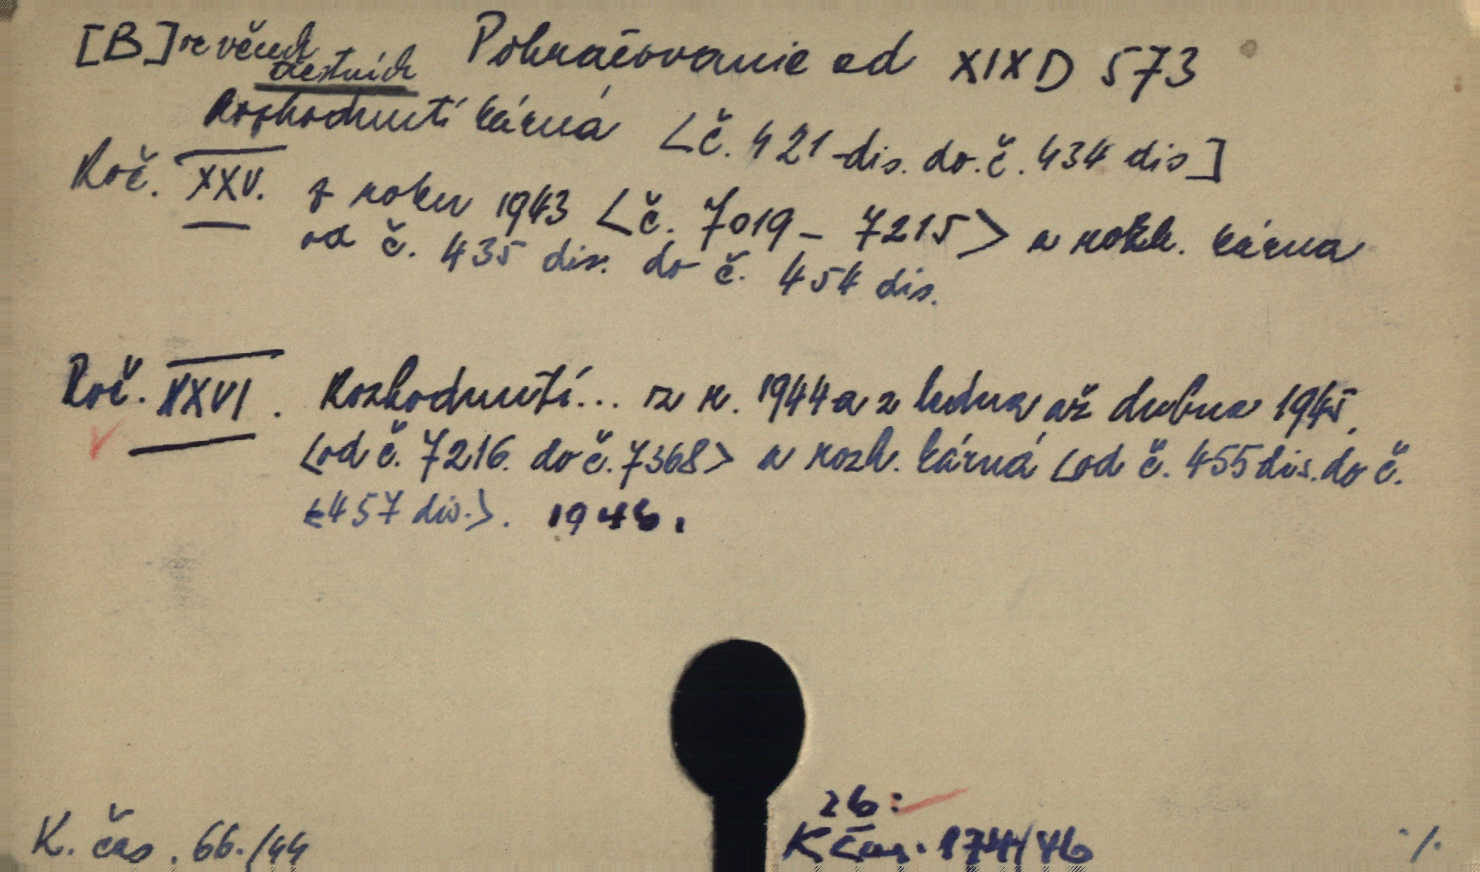 [B] ve věcech trestních Pokračovanie od XIX D 573
Rozhodnutí kárná <č. 421 dis. do č. 434 dis]
Roč. XXV. z roku 1943 <č. 7019 - 7215> a rozh. kárna
od č. 435 dis. do č. 454 dis.
Roč. XXVI. Rozhodnutí... z r. 1944 a z ledna až dubna 1945.
<od č. 7216. do č. 7368> a rozh. kárná <od č. 455 dis. do č.
457 dis.>. 1946.
26:
K. čas. 66./44
K čas. 1744/46
·/.